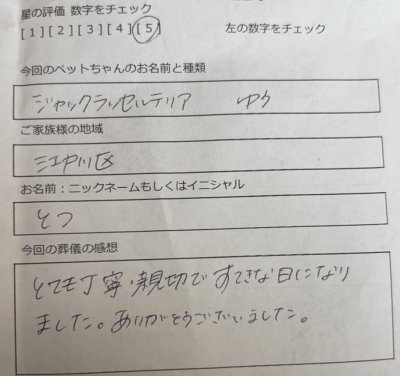 星の評価 数字をチェック
[1] [2] [3] [4] [5] 左の数字をチェック
今回のペットちゃんのお名前と種類
ジャックラッセルテリア ゆう
ご家族様の地域
江戸川区
お名前：ニックネームもしくはイニシャル
とつ
今回の葬儀の感想
とても丁寧・親切で すてきな日になり
ました。ありがとうございました。